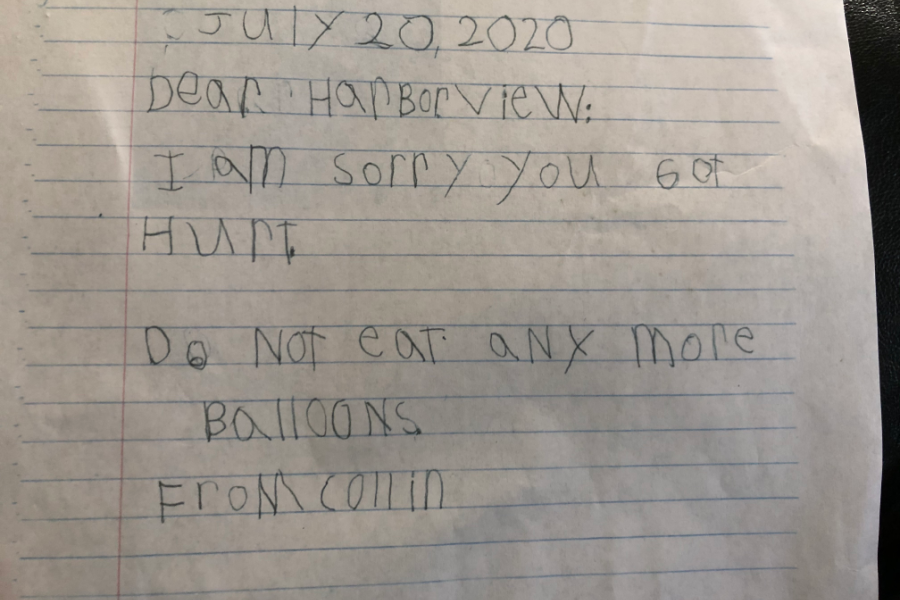 JULY 20, 2020
Dear HarBorview:
I am sorry you Got
HUrT.
Do Not eat aNy more
BallOONS.
FroM Collin